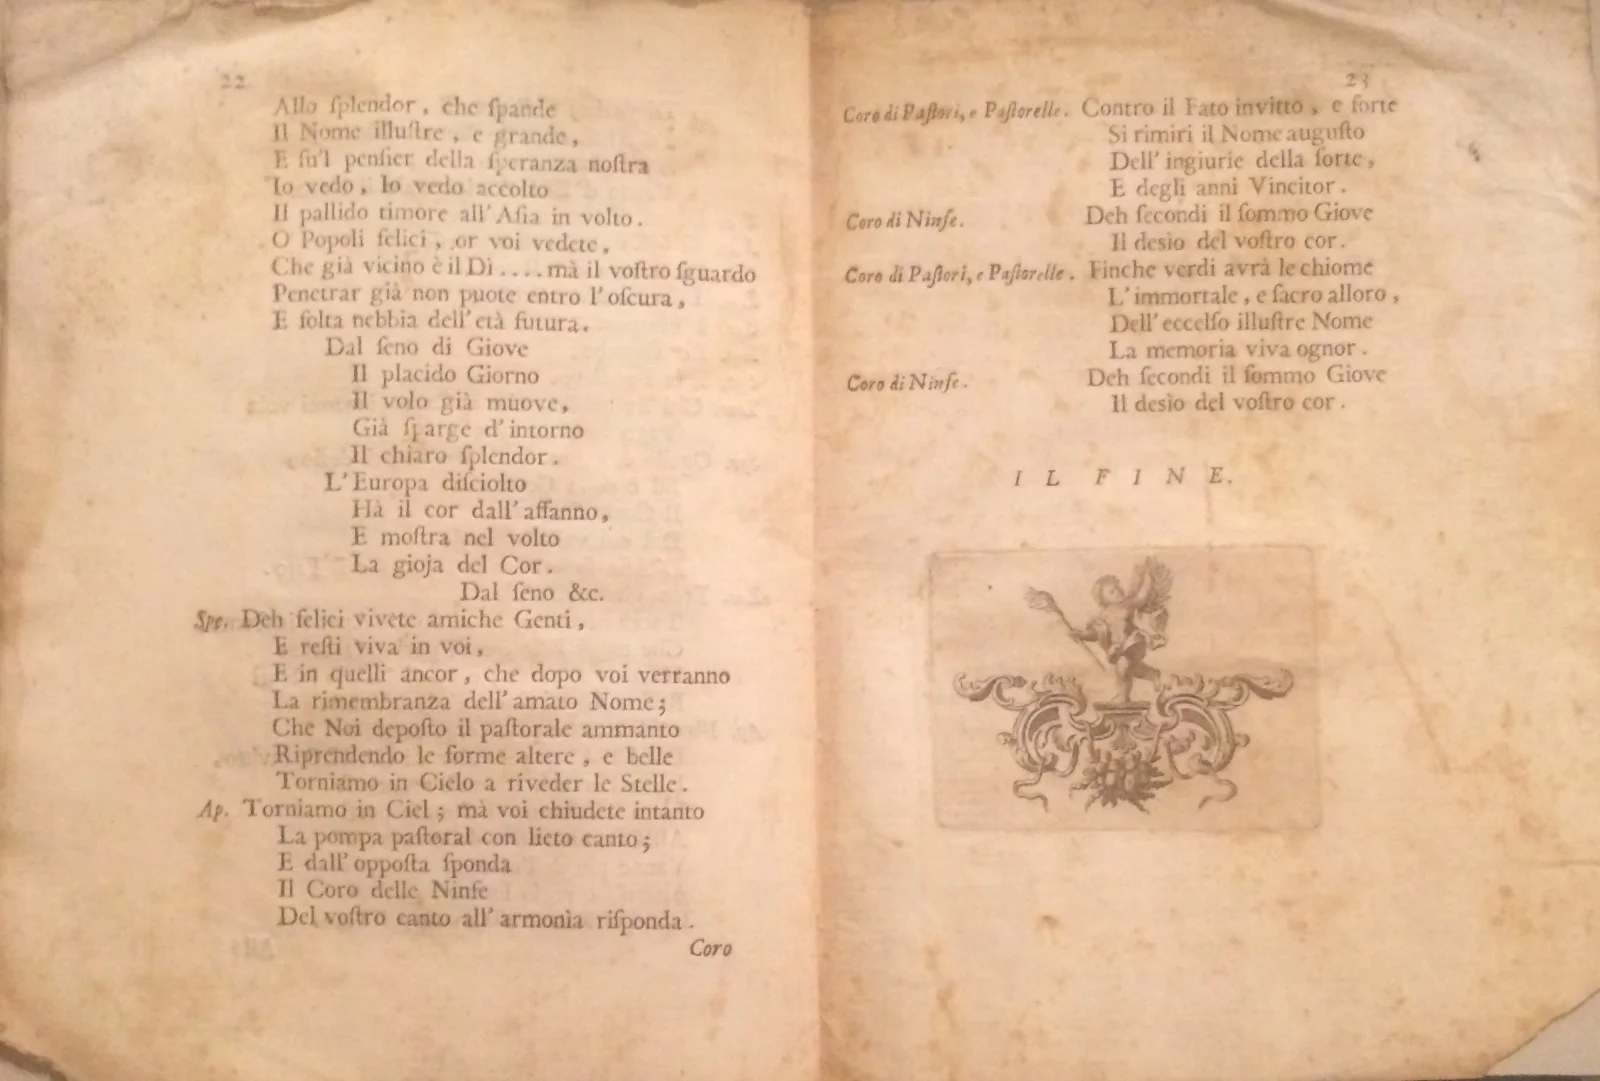 22
Allo ſplendor, che ſpande
Il Nome illuſtre, e grande,
E ſu'l penſier della ſperanza noſtra
Io vedo, Io vedo accolto
Il pallido timore all' Aſia in volto.
O Popoli felici, or voi vedete,
Che già vicino è il Dì .... mà il voſtro ſguardo
Penetrar già non puote entro l'oſcura,
E folta nebbia dell'età futura.
Dal ſeno di Giove
Il placido Giorno
Il volo già muove,
Già ſparge d'intorno
Il chiaro ſplendor.
L'Europa diſciolto
Hà il cor dall' affanno,
E moſtra nel volto
La gioja del Cor.
Dal ſeno &c.
Spe. Deh felici vivete amiche Genti,
E reſti viva in voi,
E in quelli ancor, che dopo voi verranno
La rimembranza dell' amato Nome;
Che Noi depoſto il paſtorale ammanto
Riprendendo le forme altere, e belle
Torniamo in Cielo a riveder le Stelle.
Ap. Torniamo in Ciel; mà voi chiudete intanto
La pompa paſtoral con lieto canto;
E dall' oppoſta ſponda
Il Coro delle Ninfe
Del voſtro canto all' armonìa riſponda.
Coro
23
Coro di Paſtori, e Paſtorelle. Contro il Fato invitto, e forte
Si rimiri il Nome auguſto
Dell' ingiurie della ſorte,
E degli anni Vincitor.
Coro di Ninfe. Deh ſecondi il ſommo Giove
Il desìo del voſtro cor.
Coro di Paſtori, e Paſtorelle. Finche verdi avrà le chiome
L'immortale, e ſacro alloro,
Dell' eccelſo illuſtre Nome
La memoria viva ognor.
Coro di Ninfe. Deh ſecondi il ſommo Giove
Il desìo del voſtro cor.
IL FINE.